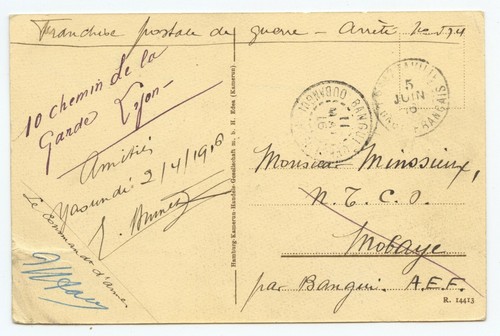 Franchise postale de guerre - Arrêté No 594
10 chemin de la
Garde Lyon -
Amitiés
Yaoundé 2/4/1916
Le Commandt d'armes
Hamburg-Kamerun-Handels-Gesellschaft m. b. H. Edea (Kamerun)
BANGUI
OUBANGUI
11
MAI
16
5
JUIN
16
Monsieur Minosieux,
N.T.C.O.
Mobaye
par Bangui. A.E.F.
R. 14413